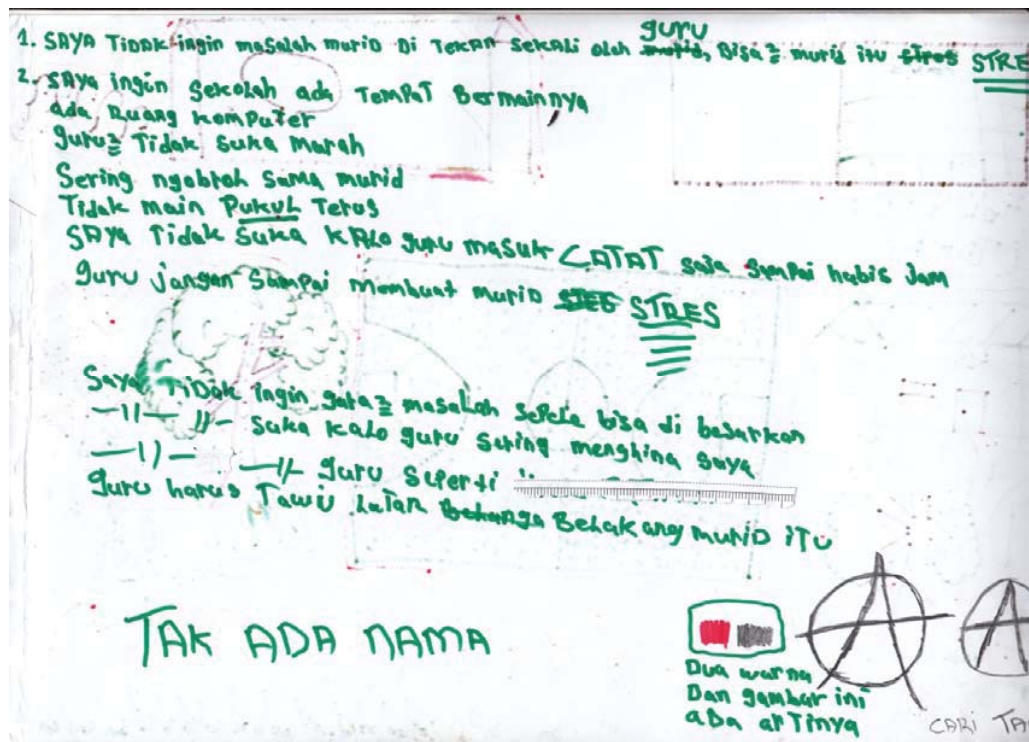 1. SAYA TiDAK ingin masalah muriD Di TeKAN sekali oleh murid, guru Bisa2 murid itu stres STRE
2. SAya ingin Sekolah ada TemPAT Bermainnya
ada Ruang KomPuTer
guru2 Tidak Suka Marah
Sering ngobrol Sama murid
Tidak main PukuL Terus
SAya Tidak Suka KALo guru masuk CATAT saja Sampai habis Jam
guru jangan Sampai membuat muriD STES STRES
Saya TiDak ingin gara2 masalah sepele bisa di besarkan
—11— 11— Suka Kalo guru Sering menghina Saya
—11— —11 guru Seperti
guru harus Tawu LaTAR Belakang muriD iTu
TAK ADA NAMA
Dua warna
Dan gambar ini
aDa arTinya
CARI TA